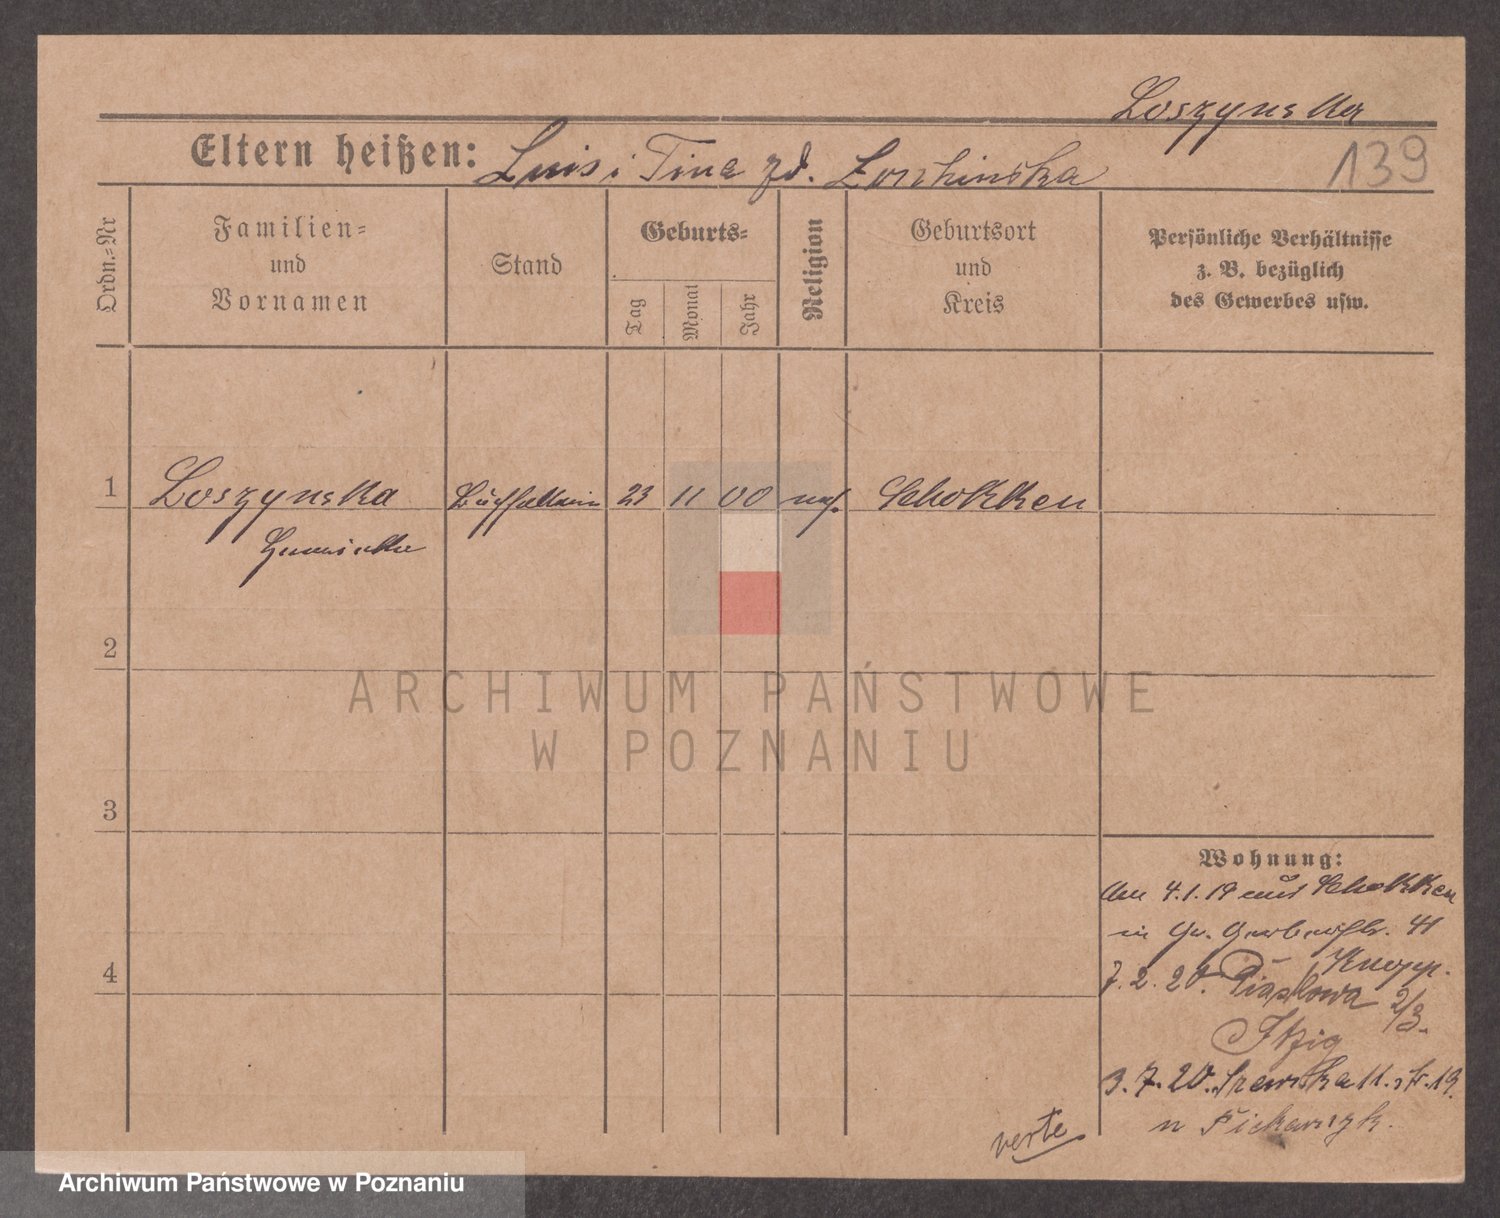 Loszynska
Eltern heißen: Luis i Tina zd.
139
Ordn.-Nr
Familien-
und
Vornamen
Stand
Geburts-
Tag
Monat
Jahr
Religion
Geburtsort
und
Kreis
Persönliche Verhältnisse
z. B. bezüglich
des Gewerbes usw.
1 Loszynska Buchhalterin 23 11 00 mos. Schokken
2
3
4
Wohnung:
Am 4.1.19 aus Schokken
in Gr. Gerberstr. 41
Knopp.
7.2.20. Piaskowa 2/3.
Itzig
3.7.20. Szewska 11.
verte
ARCHIWUM PAŃSTWOWE
W POZNANIU
Archiwum Państwowe w Poznaniu